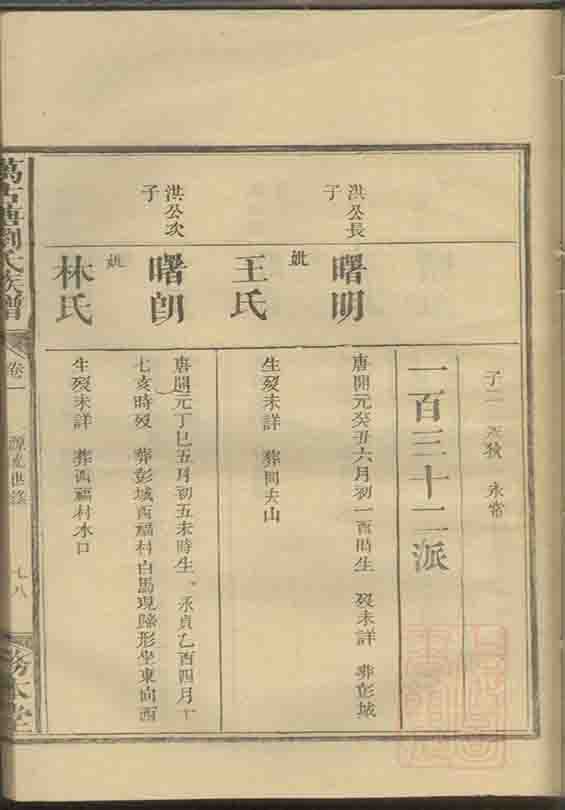 子二 永常
一百三十二派
洪公長
子
曙明
唐開元癸丑六月初一酉時生 歿未詳 葬彭城
妣
王氏
生歿未詳 葬同夫山
洪公次
子
曙朗
唐開元丁巳五月初五未時生 永貞乙酉四月十
七亥時歿 葬彭城西福村白馬現蹄形坐東向西
妣
林氏
生歿未詳 葬西福村水口
萬古塘劉氏族譜
卷一
源流世
七八
務本堂